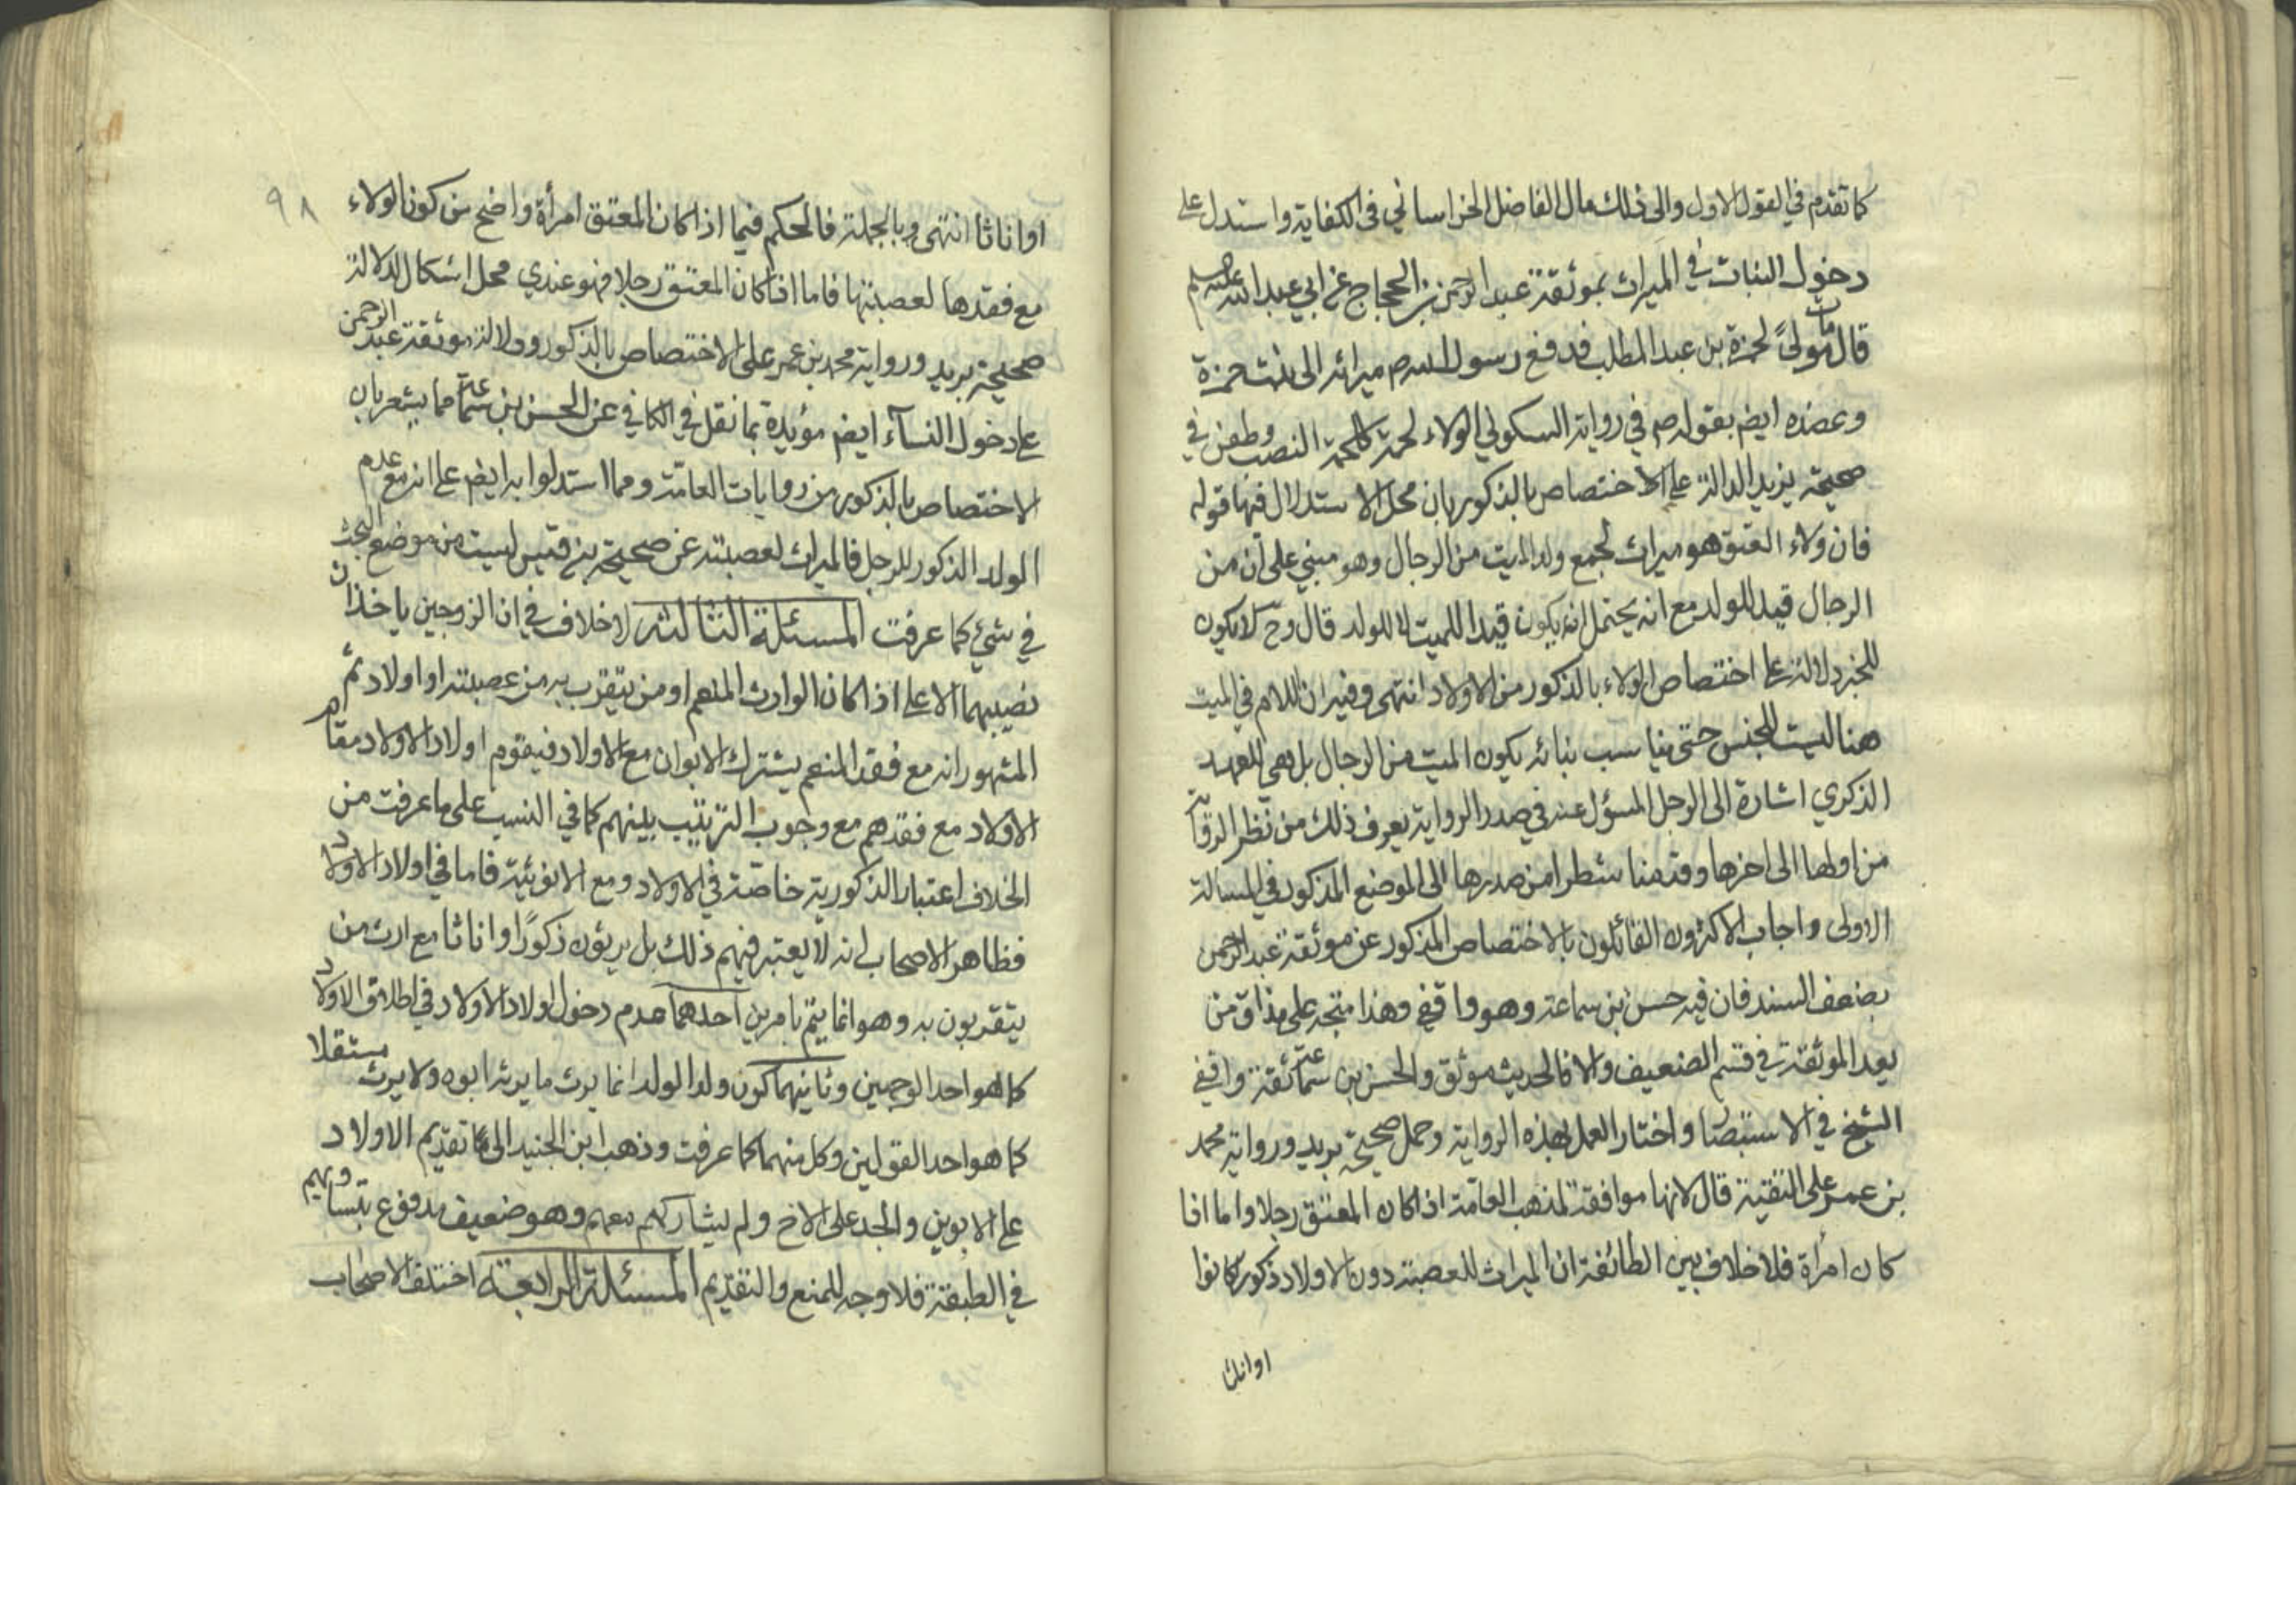 كما تقدم في القول الاول والى ذلك مال الفاضل الخراساني في الكفاية واستدل على
دخول البنات في الميراث بموثقة عبد الرحمن بن الحجاج عن ابي عبد الله عليه السلم
قال مات مولىً لحمزة بن عبد المطلب فدفع رسول الله ص ميراثه الى بنت حمزة
وعضده ايضم بقوله ص في رواية السكوني الولاء لحمة كلحمة النصب وطعن في
صحيحة يزيد الدالة على الاختصاص بالذكور بان محل الاستدلال فيها قوله
فان ولاء العتق هو ميراث لجمع ولد الميت من الرجال وهو مبني على ان من
الرجال قيد للولد مع انه يحتمل انه يكون قيدا للميت لا للولد قال وح لا يكون
للخبر دلالة على اختصاص الولاء بالذكور من الاولاد انتهى وفيه ان اللام في الميت
هنا ليست للجنس حتى يناسب بنائه بكون الميت من الرجال بل هي للعهد
الذكري اشارة الى الرجل المسؤل عنه في صدر الرواية يعرف ذلك من نظر الرواية
من اولها الى اخرها وقدمنا شطرا من صدرها الى الموضع المذكور في المسالة
الاولى واجاب الاكثرون القائلون بالاختصاص المذكور عن موثقة عبد الرحمن
بضعف السند فان فيه حسن بن سماعة وهو واقفي وهذا متجه على مذاق من
يعد الموثقة في قسم الضعيف والا فالحديث موثق والحسن بن سماعة ثقة واقفي
الشيخ في الاستبصار واختار العمل بهذه الرواية وحمل صحيحة بريد ورواية محمد
بن عمر على التقية قال لانها موافقة لمذهب العامة اذا كان المعتق رجلا واما اذا
كان امرأة فلا خلاف بين الطائفة ان الميراث للعصبة دون الاولاد ذكور كانوا
او اناث
٩٨
او اناثا انتهى وبالجملة فالحكم فيما اذا كان المعتق امرأة واضح من كون الولاء
مع فقدها لعصبتها فاما اذا كان المعتق رجلا فهو عندي محل اشكال لدلالة
صحيحة بريد ورواية محمد بن عمر على الاختصاص بالذكور ودلالة موثقة عبد الرحمن
على دخول النسآء ايضم مؤيدة بما نقل في الكافي عن الحسن بن سماعة مما يشعر بان
الاختصاص بالذكور من روايات العامة ومما استدلوا به ايضم على انه مع عدم
الولد الذكور للرجل فالميراث لعصبته عن صحيحة بن قيس ليست من موضع البحث
في شيء كما عرفت المسئلة الثالثة لا خلاف في ان الزوجين ياخذان
نصيبهما الاعلى اذا كان الوارث المنعم او من يتقرب به من عصبته او اولاد ثم
المشهور انه مع فقد المنعم يشترك الابوان مع الاولاد فيقوم اولاد الاولاد مقام
الاولاد مع فقدهم مع وجوب الترتيب بينهم كما في النسب على ما عرفت من
الخلاف اعتبار الذكورية خاصة في الاولاد ومع الانوثية فاما في اولاد الاولاد
فظاهر الاصحاب انه لا يعتبر فيهم ذلك بل يرثون ذكورًا او اناثا مع ارث من
يتقربون به وهو انما يتم بامرين احدهما عدم دخول اولاد الاولاد في اطلاق الاولاد
كما هو احد الوجهين وثانيهما كون ولد الولد انما يرث ما يرثه ابوه ولا يرث مستقلا
كما هو احد القولين وكل منهما كما عرفت وذهب ابن الجنيد الى تقديم الاولاد
على الابوين والجد على الاخ ولم يشاركهم معهم وهو ضعيف مدفوع بتساويهم
في الطبقة فلا وجه للمنع والتقديم المسئلة الرابعة اختلف الاصحاب